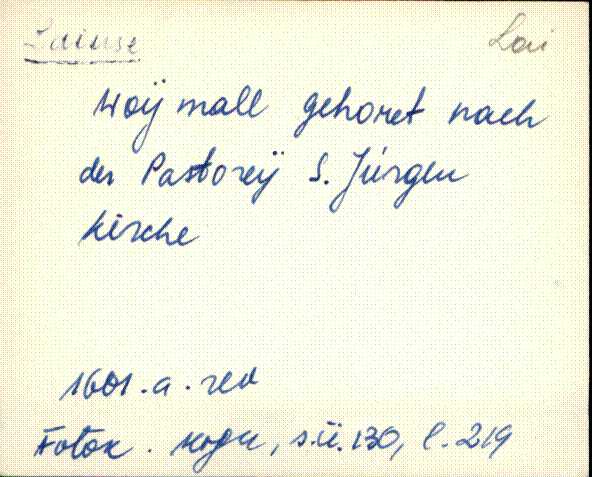 Laiuse Loi
Woÿ mall gehoret nach
der Pastoreÿ S. Jürgen
Kirche
1601. a. rev
Fotok. kogu, s.ü. 130, l. 219